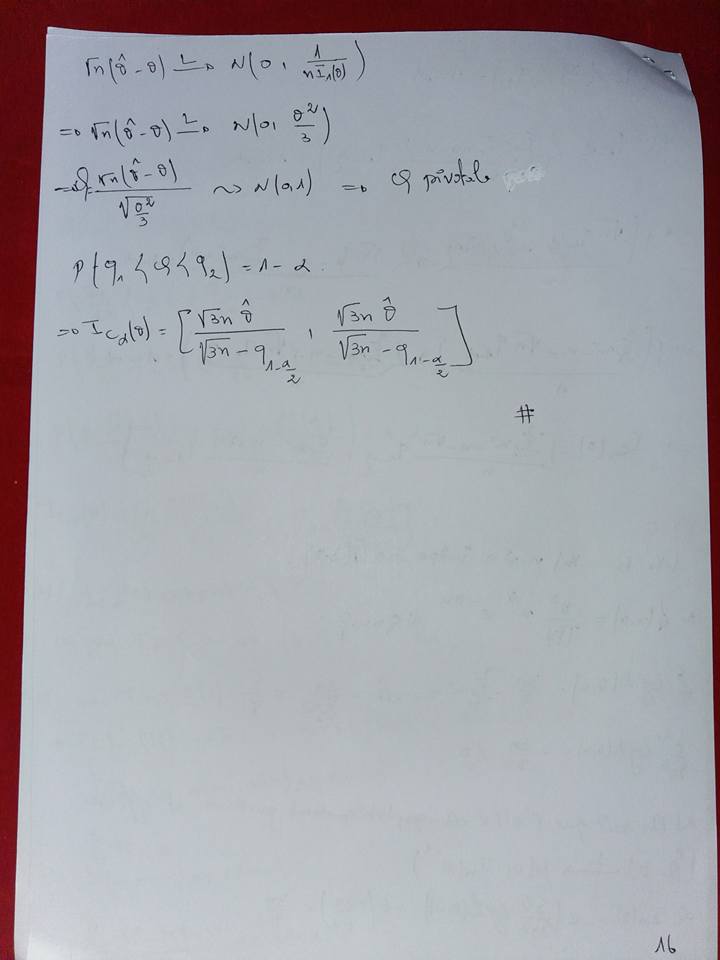 √n(θ̂ - θ) —L→ N(0, 1/(nI₁(θ)))
⇒ √n(θ̂ - θ) —L→ N(0, θ²/3)
⇒ Q = √n(θ̂ - θ)/√(θ²/3) ~ N(0,1) ⇒ Q pivotale
P{q₁ < Q < q₂} = 1 - α.
⇒ I_{Cα}(θ) = [√3n θ̂/(√3n - q_{1-α/2}), √3n θ̂/(√3n - q_{1-α/2})]
#
16